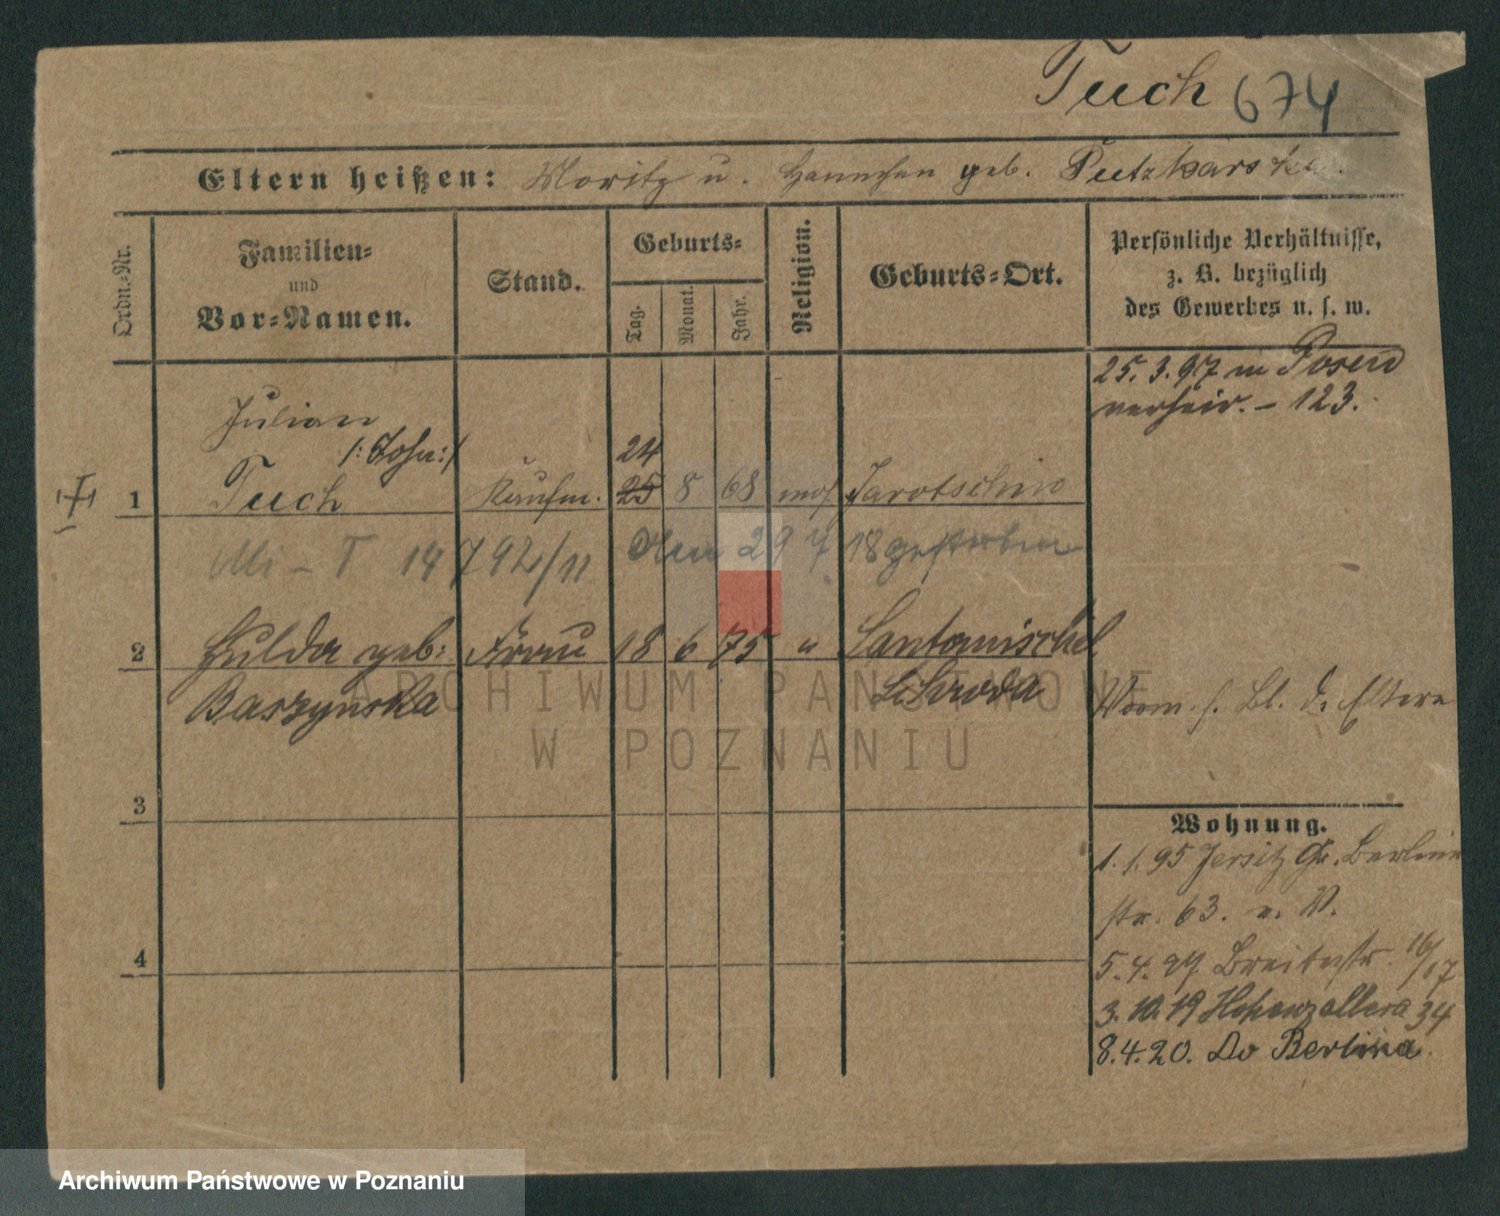 Tuch 674
Eltern heißen: Moritz u. Hannchen geb. Putzkarska.
Ordn.-Nr.
Familien-
und
Vor-Namen.
Stand.
Geburts-
Tag.
Monat.
Jahr.
Religion.
Geburts-Ort.
Persönliche Verhältnisse,
z. B. bezüglich
des Gewerbes u. s. w.
25. 3. 97 in Posen
verheir. – 123.
Julian
24
1 Tuch Kaufm. 25 8 68 mos. Jarotschin
14792/11 29 7 18 gestorben
2 Hulda geb: Frau 18 6 75 " Santomischel
Baszynska Schroda
Vorm. s. Bl. d. Eltern
3
Wohnung.
1. 1. 95 Jersitz Gr. Berliner
str. 63. v. P.
4
5. 4. 97 Breitestr. 16/17
3. 10. 19 Hohenzollern 34
8. 4. 20. Do Berlina
ARCHIWUM PAŃSTWOWE
W POZNANIU
Archiwum Państwowe w Poznaniu